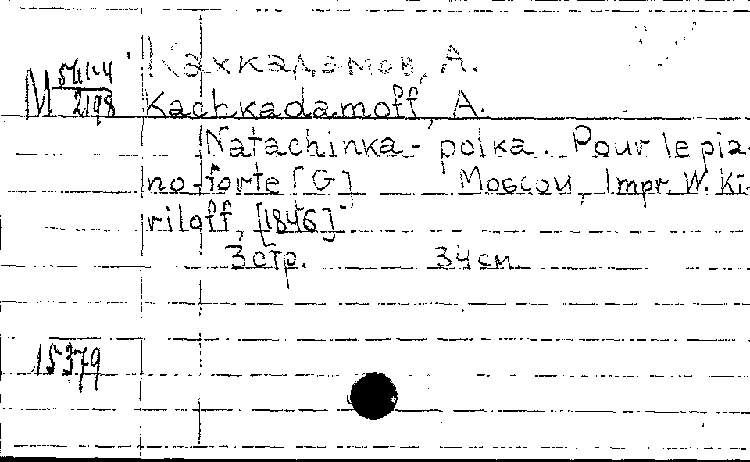 Кахкадамов, А.
M 2198
Kachkadamoff, A.
Natachinka - polka. Pour le pia-
no-forte [G] Moscou, Impr. W. Ki-
riloff, [1846].
3 стр. 34 см.
15379